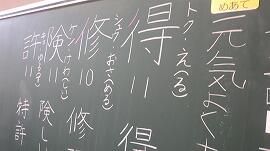 めあて
元気よく
トク
え(る)
得 11
得
シュウ
おさめる)
修 10
修
ケン
けわしい
険 11
険しい
キョ
ゆるす)
許 11
特許